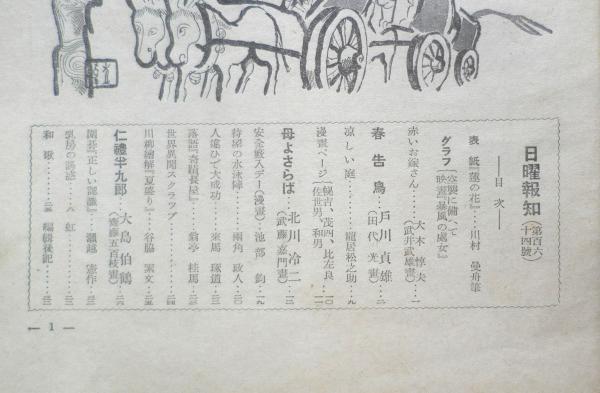 日曜報知(第百六十四號)
――目次――
表紙『蓮の花』……川村曼舟筆
グラフ{空襲に備へて
映畫『暴風の處女』
赤いお嫁さん……大木惇夫…一
(武井武雄畫)
春告鳥……戸川貞雄…二
(田代光畫)
凉しい庭……龍居松之助…九
漫畫ページ{幌吉、茂四、比左良…一〇
佐世男、和男…一一
母よさらば……北川冷二…一二
(武藤嘉門畫)
安全廢入デー(漫畫)…池部鈞…一九
待望の水泳陣……兩角政人…二〇
人違ひで大成功……來馬琢道…二三
落語『奇蹟長屋』……翁亭桂馬…
世界異聞スクラップ……二四
川柳繪解『夏盛り』……谷脇素文…二五
仁禮半九郎…大島伯鶴…二六
(齋藤五百枝畫)
圍碁『正しい』…瀨越憲作…三
乳房の誘惑…八虹
和歌……編輯後記…
— 1 —